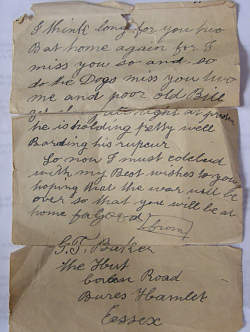 I think long for you two
B at home again for I
miss you so and so
do the Dogs miss you two
me and poor old Bill
he is holding Petty well
Barding his rupcur
So now I must colclud
with my Best wishes to you
hoping that the war will be
over so that you will be at
home for Good
from
G.T. Baker
the Hut
Road
Bures Hamlet
Essex